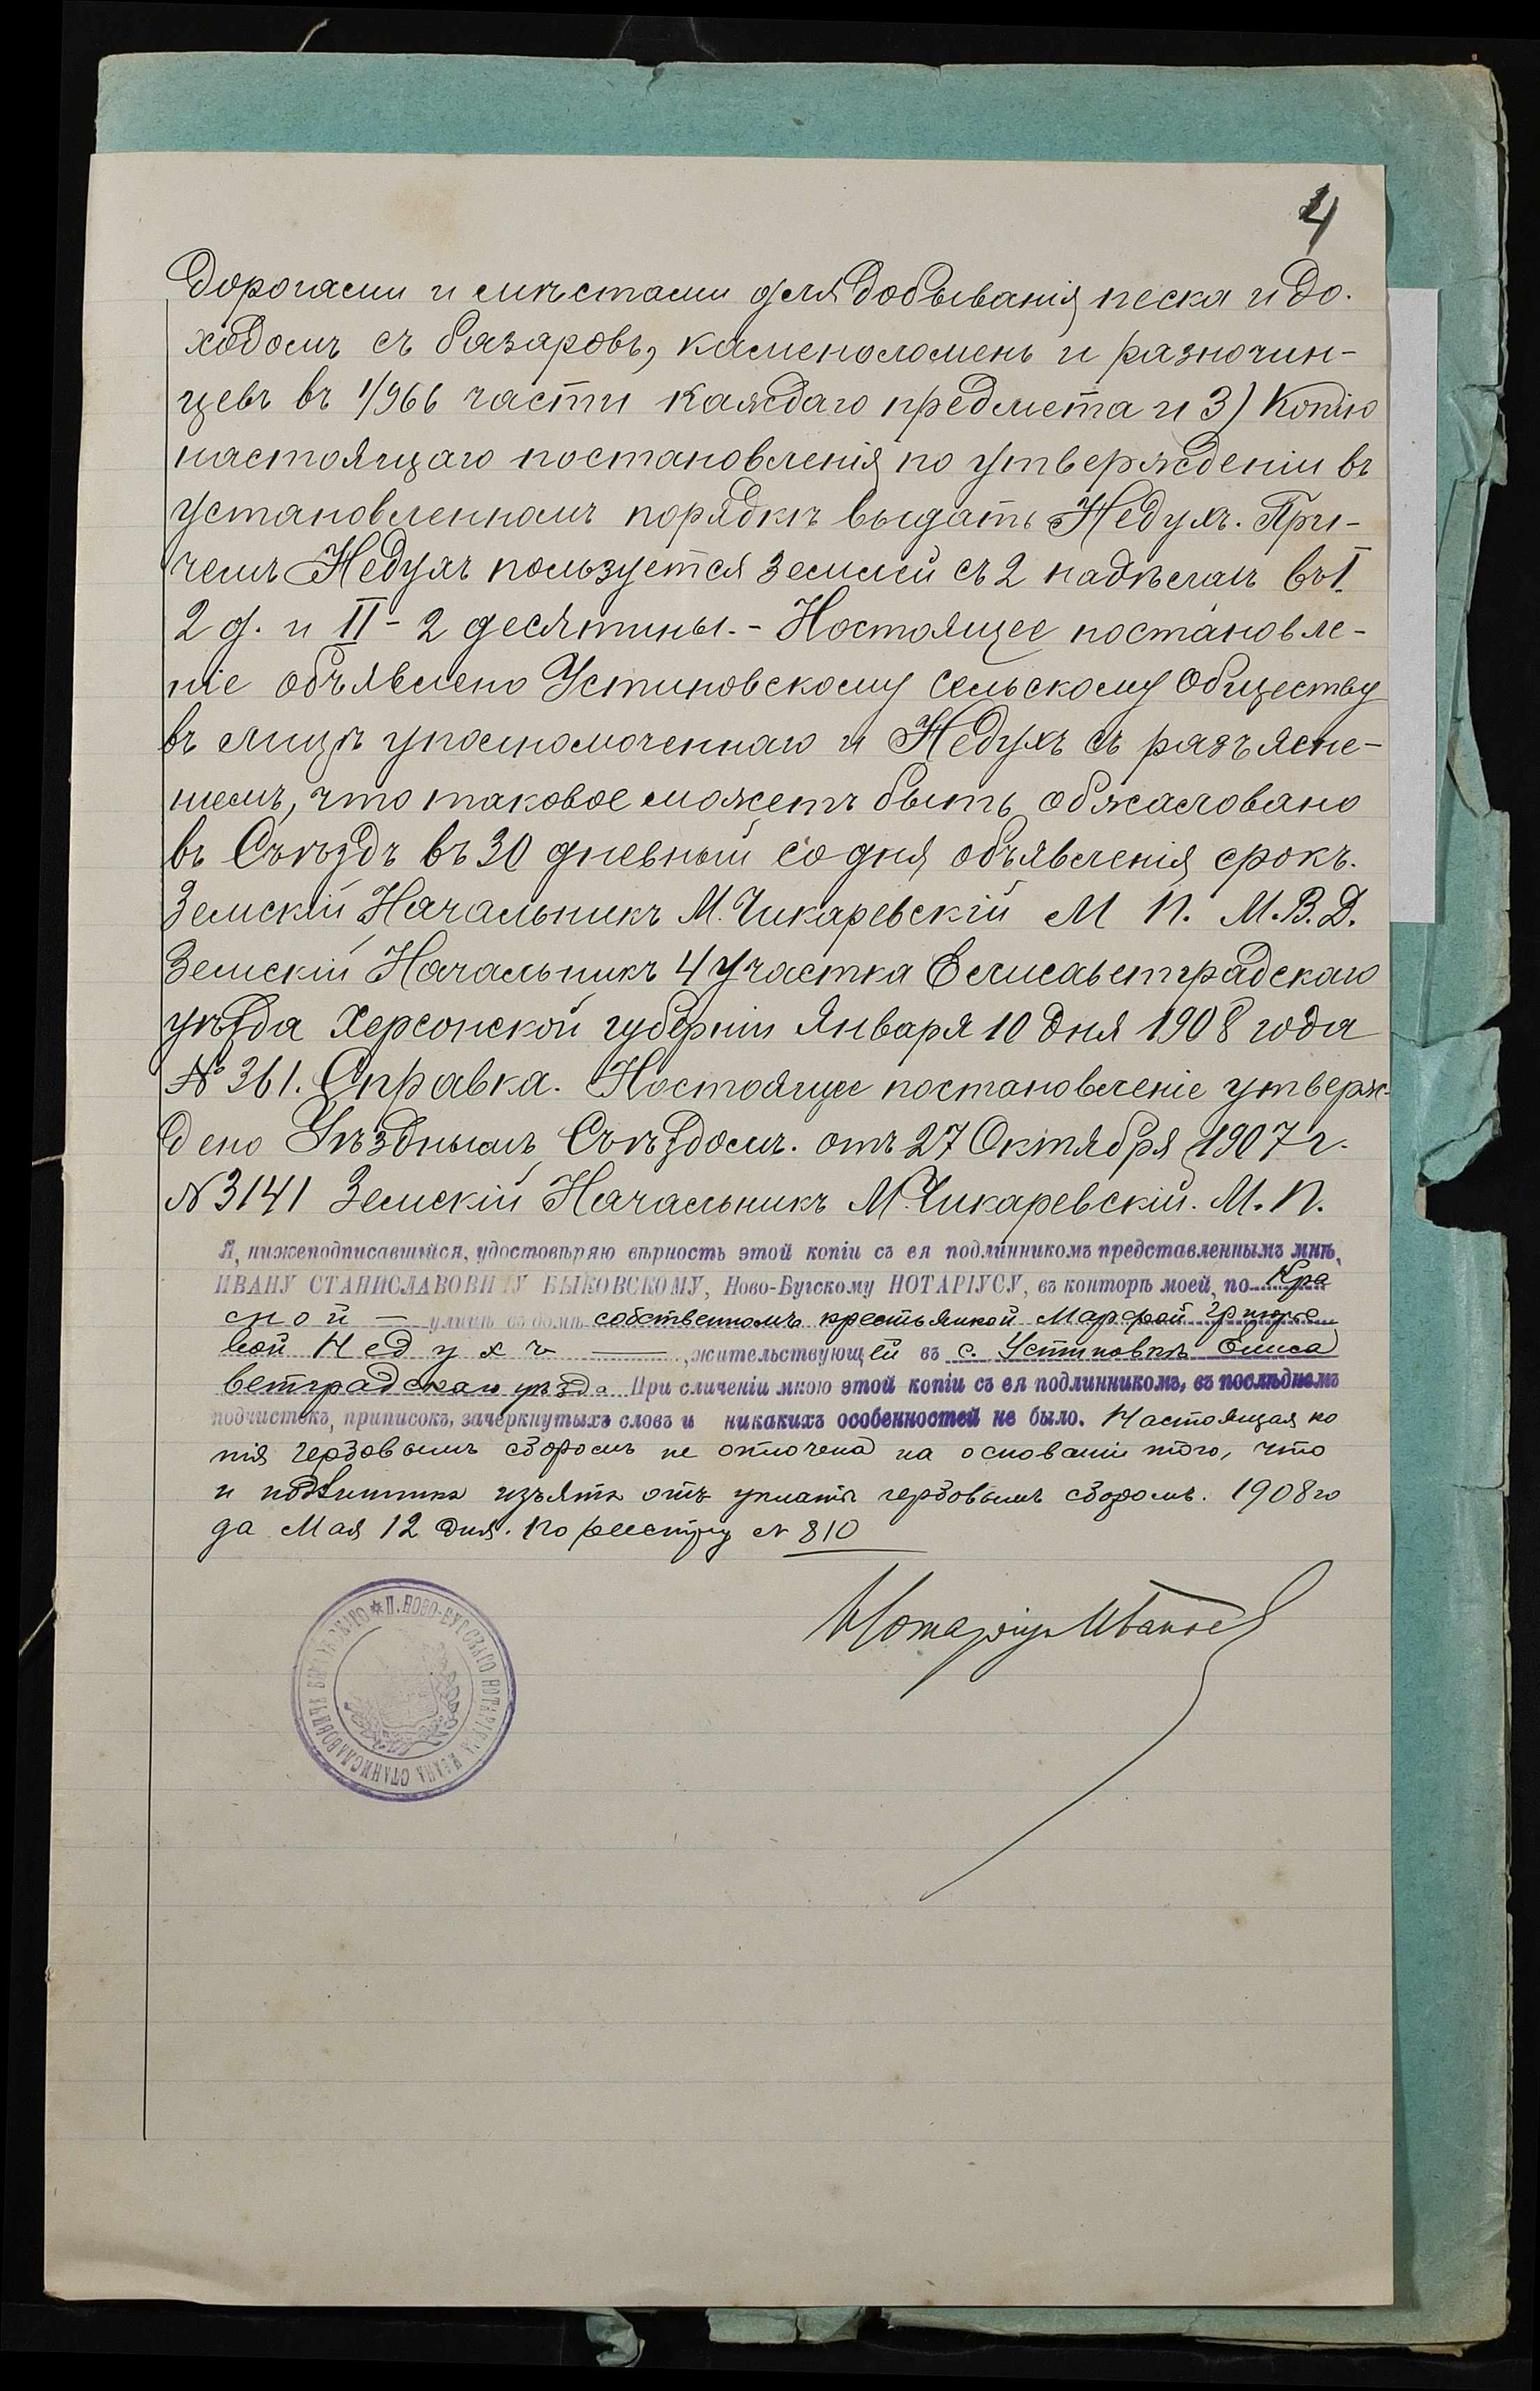 4
дорогами и мѣстами для добыванія песка и до-
ходомъ съ базаровъ, каменоломень и разночин-
цевъ въ 1/966 части каждаго предмета и 3) Копію
настоящаго постановленія по утвержденіи въ
установленномъ порядкѣ выдать Недухъ. При-
чемъ Недухъ пользуется землей съ 2 надѣлам въ I
2 д. и II - 2 десятины. - Настоящее постановле-
ніе объявлено Устиновскому сельскому обществу
въ лицѣ уполномоченнаго и Недухъ съ разъясне-
ніемъ, что таковое можетъ быть обжаловано
въ Съѣздъ въ 30 дневный со дня объявленія срокъ.
Земскій Начальникъ М. Чикаревскій М. П. М.В.Д.
Земскій Начальникъ 4 участка Елисаветградскаго
уѣзда Херсонской губерніи Января 10 дня 1908 года
№ 361. Справка. Настоящее постановленіе утверж-
дено Уѣзднымъ Съѣздомъ. отъ 27 Октября 1907 г.
N 3141 Земскій Начальникъ М. Чикаревскій. М. П.
Я, нижеподписавшійся, удостовѣряю вѣрность этой копіи съ ея подлинникомъ представленнымъ мнѣ,
ИВАНУ СТАНИСЛАВОВИЧУ БЫКОВСКОМУ, Ново-Бугскому НОТАРІУСУ, въ конторѣ моей, по Кра
сной — улицѣ въ домѣ собственномъ крестьянкой Марфой Григорье
вой Недухъ — , жительствующей въ с. Устиновкѣ Елиса
ветградскаго уѣзда. При сличеніи мною этой копіи съ ея подлинникомъ, въ послѣднемъ
подчистокъ, приписокъ, зачеркнутыхъ словъ и никакихъ особенностей не было. Настоящая ко
пія гербовымъ сборомъ не оплочена на основаніи того, что
и подлинникъ изъятъ отъ уплаты гербовымъ сборомъ. 1908 го
да Мая 12 дня. По реестру N 810
Нотаріусъ
П. НОВО-БУГСКАГО НОТАРІУСА ИВАНА СТАНИСЛАВОВИЧА БЫКОВСКАГО